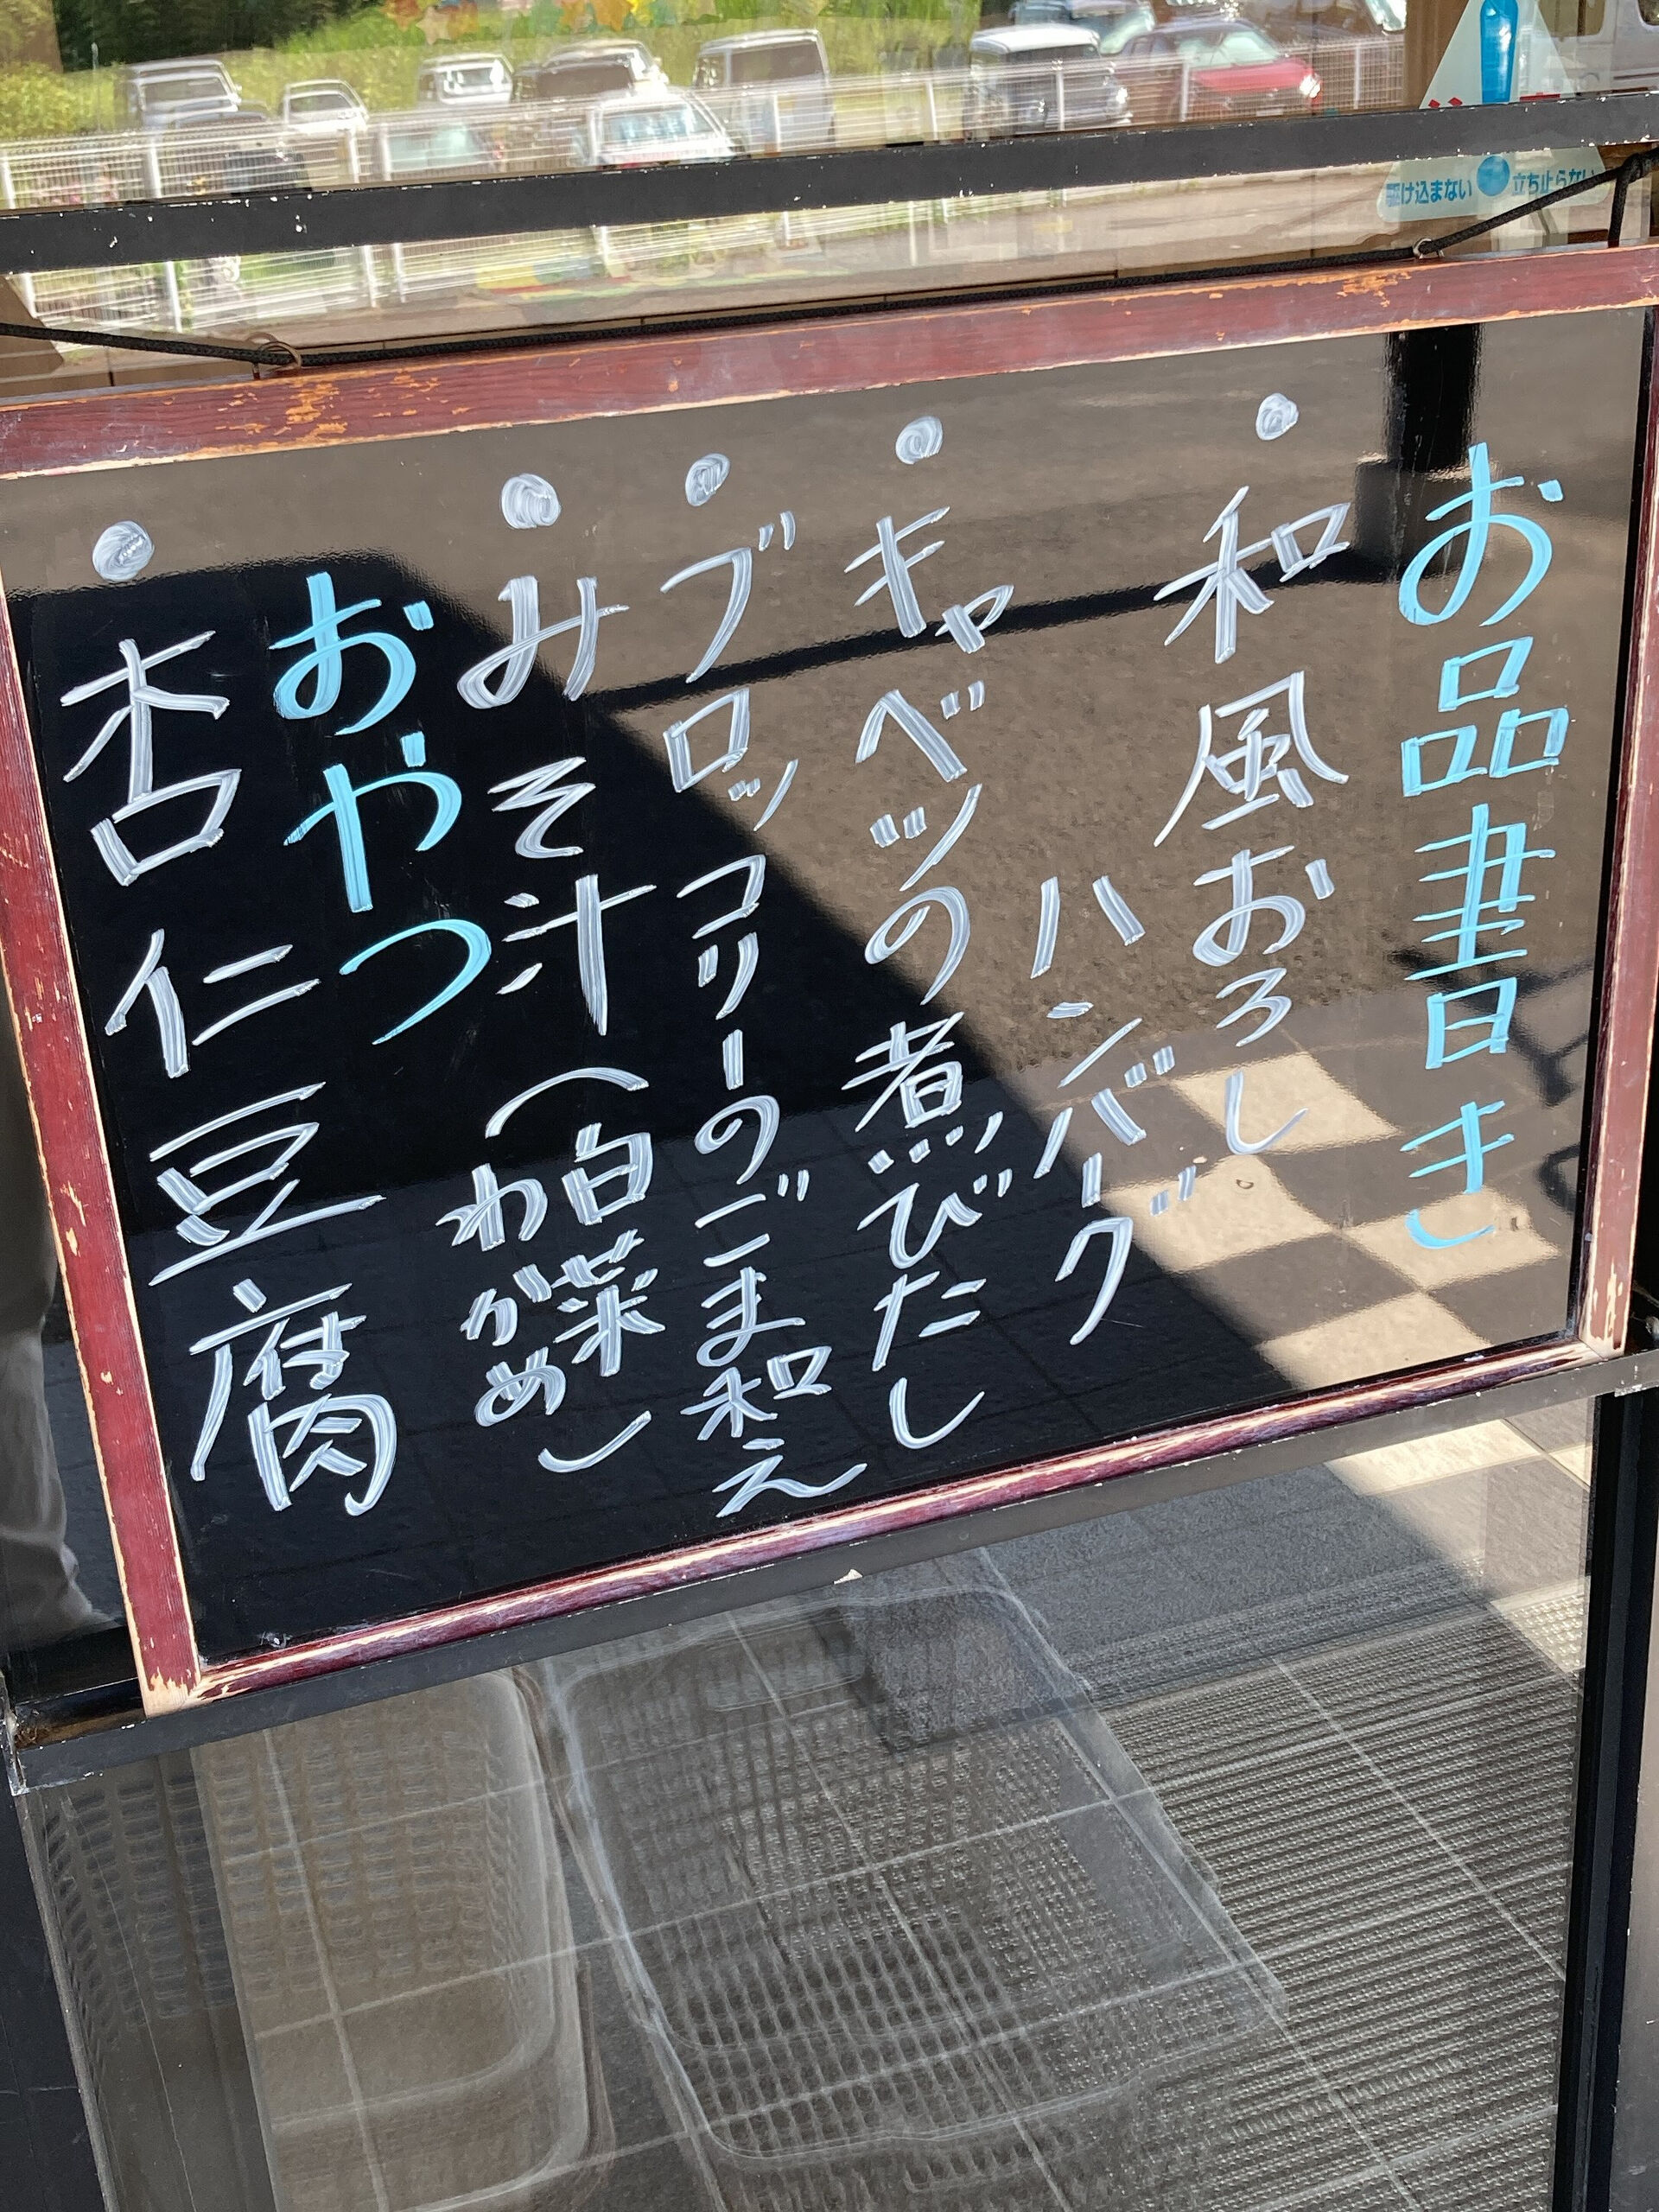 お品書き
・和風おろし
ハンバーグ
・キャベツの煮びたし
・ブロッコリーのごま和え
・みそ汁(白菜
わかめ)
おやつ
・杏仁豆腐
駆け込まない 立ち止らない